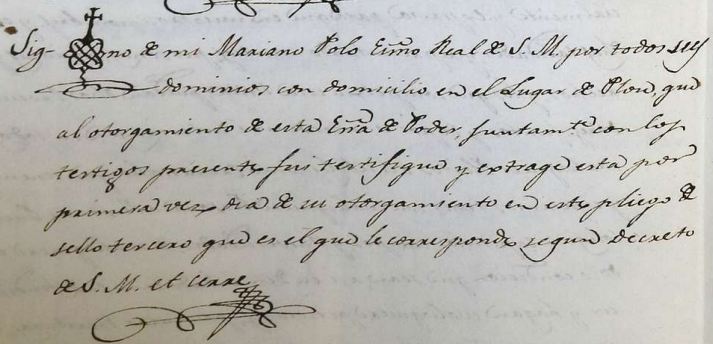 Sig- no de mi Mariano Polo Essno Real de S. M. por todos sus
dominios con domicilio en el Lugar de Plou, que
al otorgamiento de esta Essra de Poder, juntamte con los
testigos presentes fui testifique y extrage esta por
primera vez dia de su otorgamiento en este pliego de
sello tercero que es el que le corresponde segun decreto
de S. M. et cerre